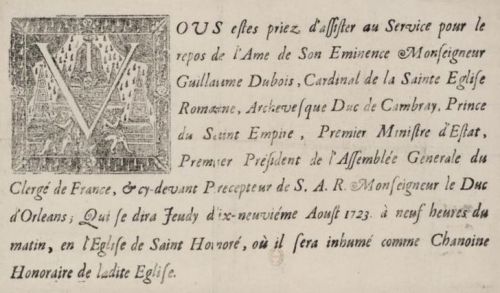 VOUS estes priez d'assister au Service pour le
repos de l'Ame de Son Eminence Monseigneur
Guillaume Dubois, Cardinal de la Sainte Eglise
Romaine, Archevesque Duc de Cambray, Prince
du Saint Empire, Premier Ministre d'Estat,
Premier Président de l'Assemblée Generale du
Clergé de France, & cy-devant Precepteur de S. A. R. Monseigneur le Duc
d'Orleans; Qui se dira Jeudy dix-neuviéme Aoust 1723. à neuf heures du
matin, en l'Eglise de Saint Honoré, où il sera inhumé comme Chanoine
Honoraire de ladite Eglise.